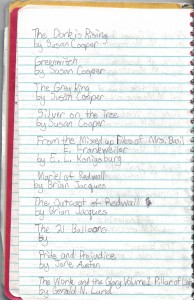 The Dark is Rising
by Susan Cooper
Greenwitch
by Susan Cooper
The Grey King
by Susan Cooper
Silver on the Tree
by Susan Cooper
From the Mixed up Files of Mrs. Basil
E. Frankweiler
by E. L. Konigsburg
Mariel of Redwall
by Brian Jacques
The Outcast of Redwall
by Brian Jacques
The 21 Balloons
by
Pride and Prejudice
by Jane Austen
The Work and the Glory Volume 1 Pillar of
by Gerald N. Lund